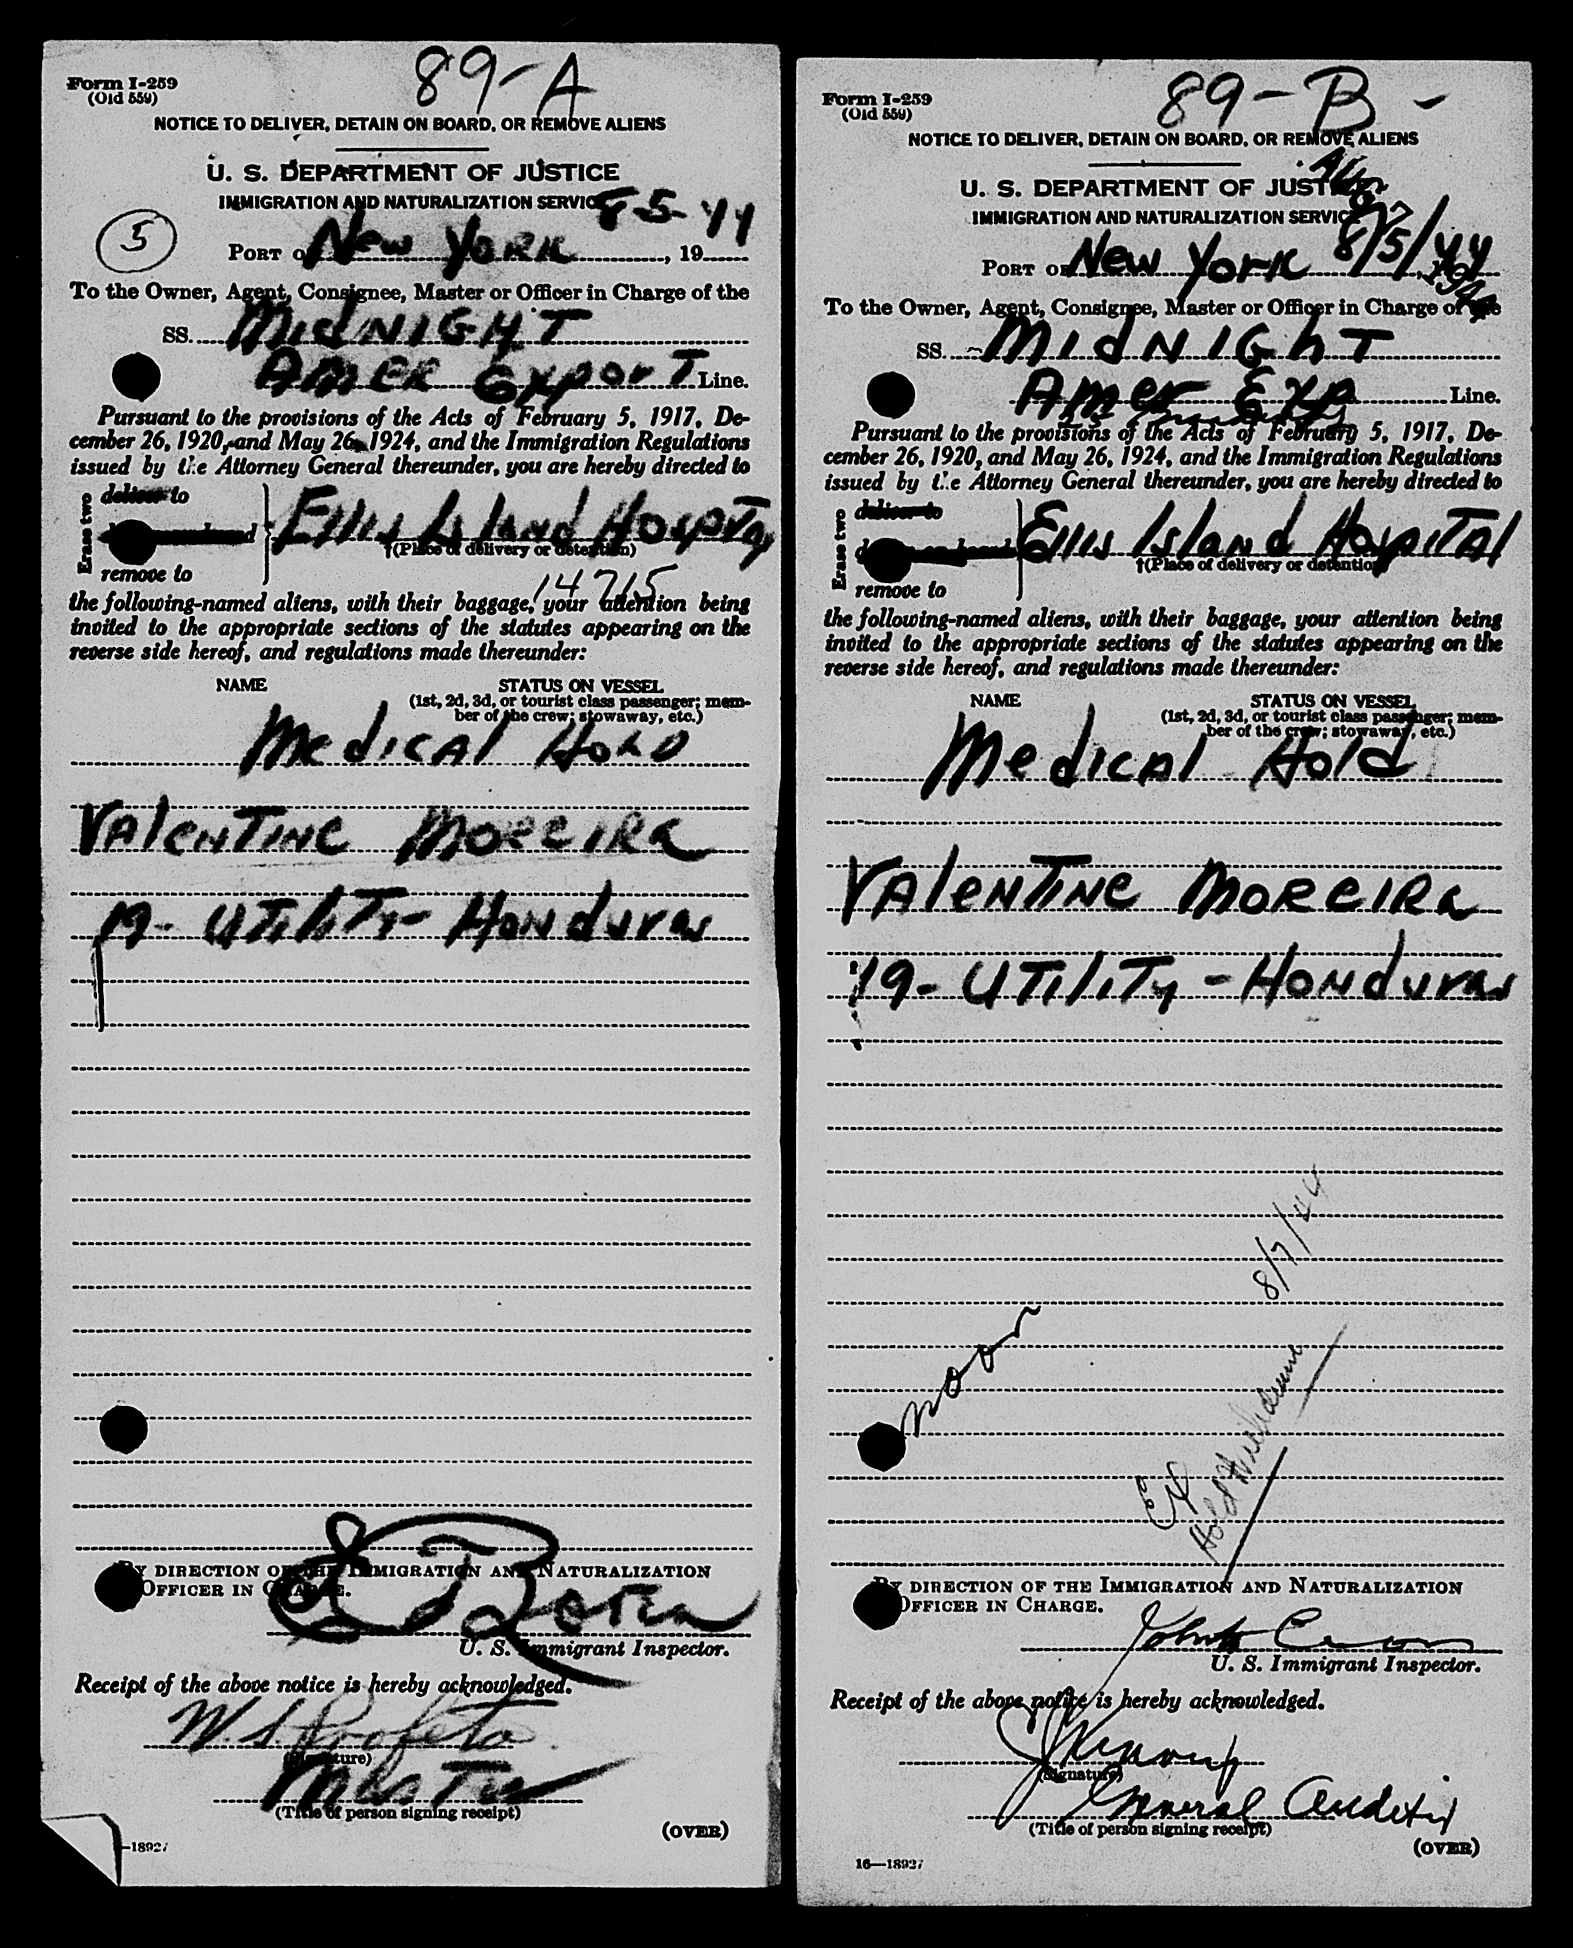 89-A
Form I-259
(Old 559)
NOTICE TO DELIVER, DETAIN ON BOARD, OR REMOVE ALIENS
U. S. DEPARTMENT OF JUSTICE
IMMIGRATION AND NATURALIZATION SERVICE
8-5-44
5
PORT OF New YORK, 19
To the Owner, Agent, Consignee, Master or Officer in Charge of the
SS. MIdNIGHT
AMER EXPORT Line.
Pursuant to the provisions of the Acts of February 5, 1917, De-
cember 26, 1920, and May 26, 1924, and the Immigration Regulations
issued by the Attorney General thereunder, you are hereby directed to
Erase two
deliver to
Ellis Island Hospital
†(Place of delivery or detention)
remove to
14715
the following-named aliens, with their baggage, your attention being
invited to the appropriate sections of the statutes appearing on the
reverse side hereof, and regulations made thereunder:
NAME STATUS ON VESSEL
(1st, 2d, 3d, or tourist class passenger; mem-
ber of the crew; stowaway, etc.)
Medical Hold
Valentine Moreira
19- Utility- Honduras
BY DIRECTION OF THE IMMIGRATION AND NATURALIZATION
OFFICER IN CHARGE.
U. S. Immigrant Inspector.
Receipt of the above notice is hereby acknowledged.
W. S. Profeta
(Signature)
Master
(Title of person signing receipt)
(OVER)
—18927
89-B-
Form I-259
(Old 559)
NOTICE TO DELIVER, DETAIN ON BOARD, OR REMOVE ALIENS
U. S. DEPARTMENT OF JUSTICE
IMMIGRATION AND NATURALIZATION SERVICE
Aug 7 1944
PORT OF New York 8/5/44
To the Owner, Agent, Consignee, Master or Officer in Charge of the
SS. MIdNIGhT
Amer Exp Line.
Pursuant to the provisions of the Acts of February 5, 1917, De-
cember 26, 1920, and May 26, 1924, and the Immigration Regulations
issued by the Attorney General thereunder, you are hereby directed to
Erase two
deliver to
Ellis Island Hospital
†(Place of delivery or detention)
remove to
the following-named aliens, with their baggage, your attention being
invited to the appropriate sections of the statutes appearing on the
reverse side hereof, and regulations made thereunder:
NAME STATUS ON VESSEL
(1st, 2d, 3d, or tourist class passenger; mem-
ber of the crew; stowaway, etc.)
Medical Hold
Valentine Moreira
19- Utility - Honduras
8/7/44
noon
Hold
BY DIRECTION OF THE IMMIGRATION AND NATURALIZATION
OFFICER IN CHARGE.
U. S. Immigrant Inspector.
Receipt of the above notice is hereby acknowledged.
(Signature)
General Auditor
(Title of person signing receipt)
(OVER)
16—18927